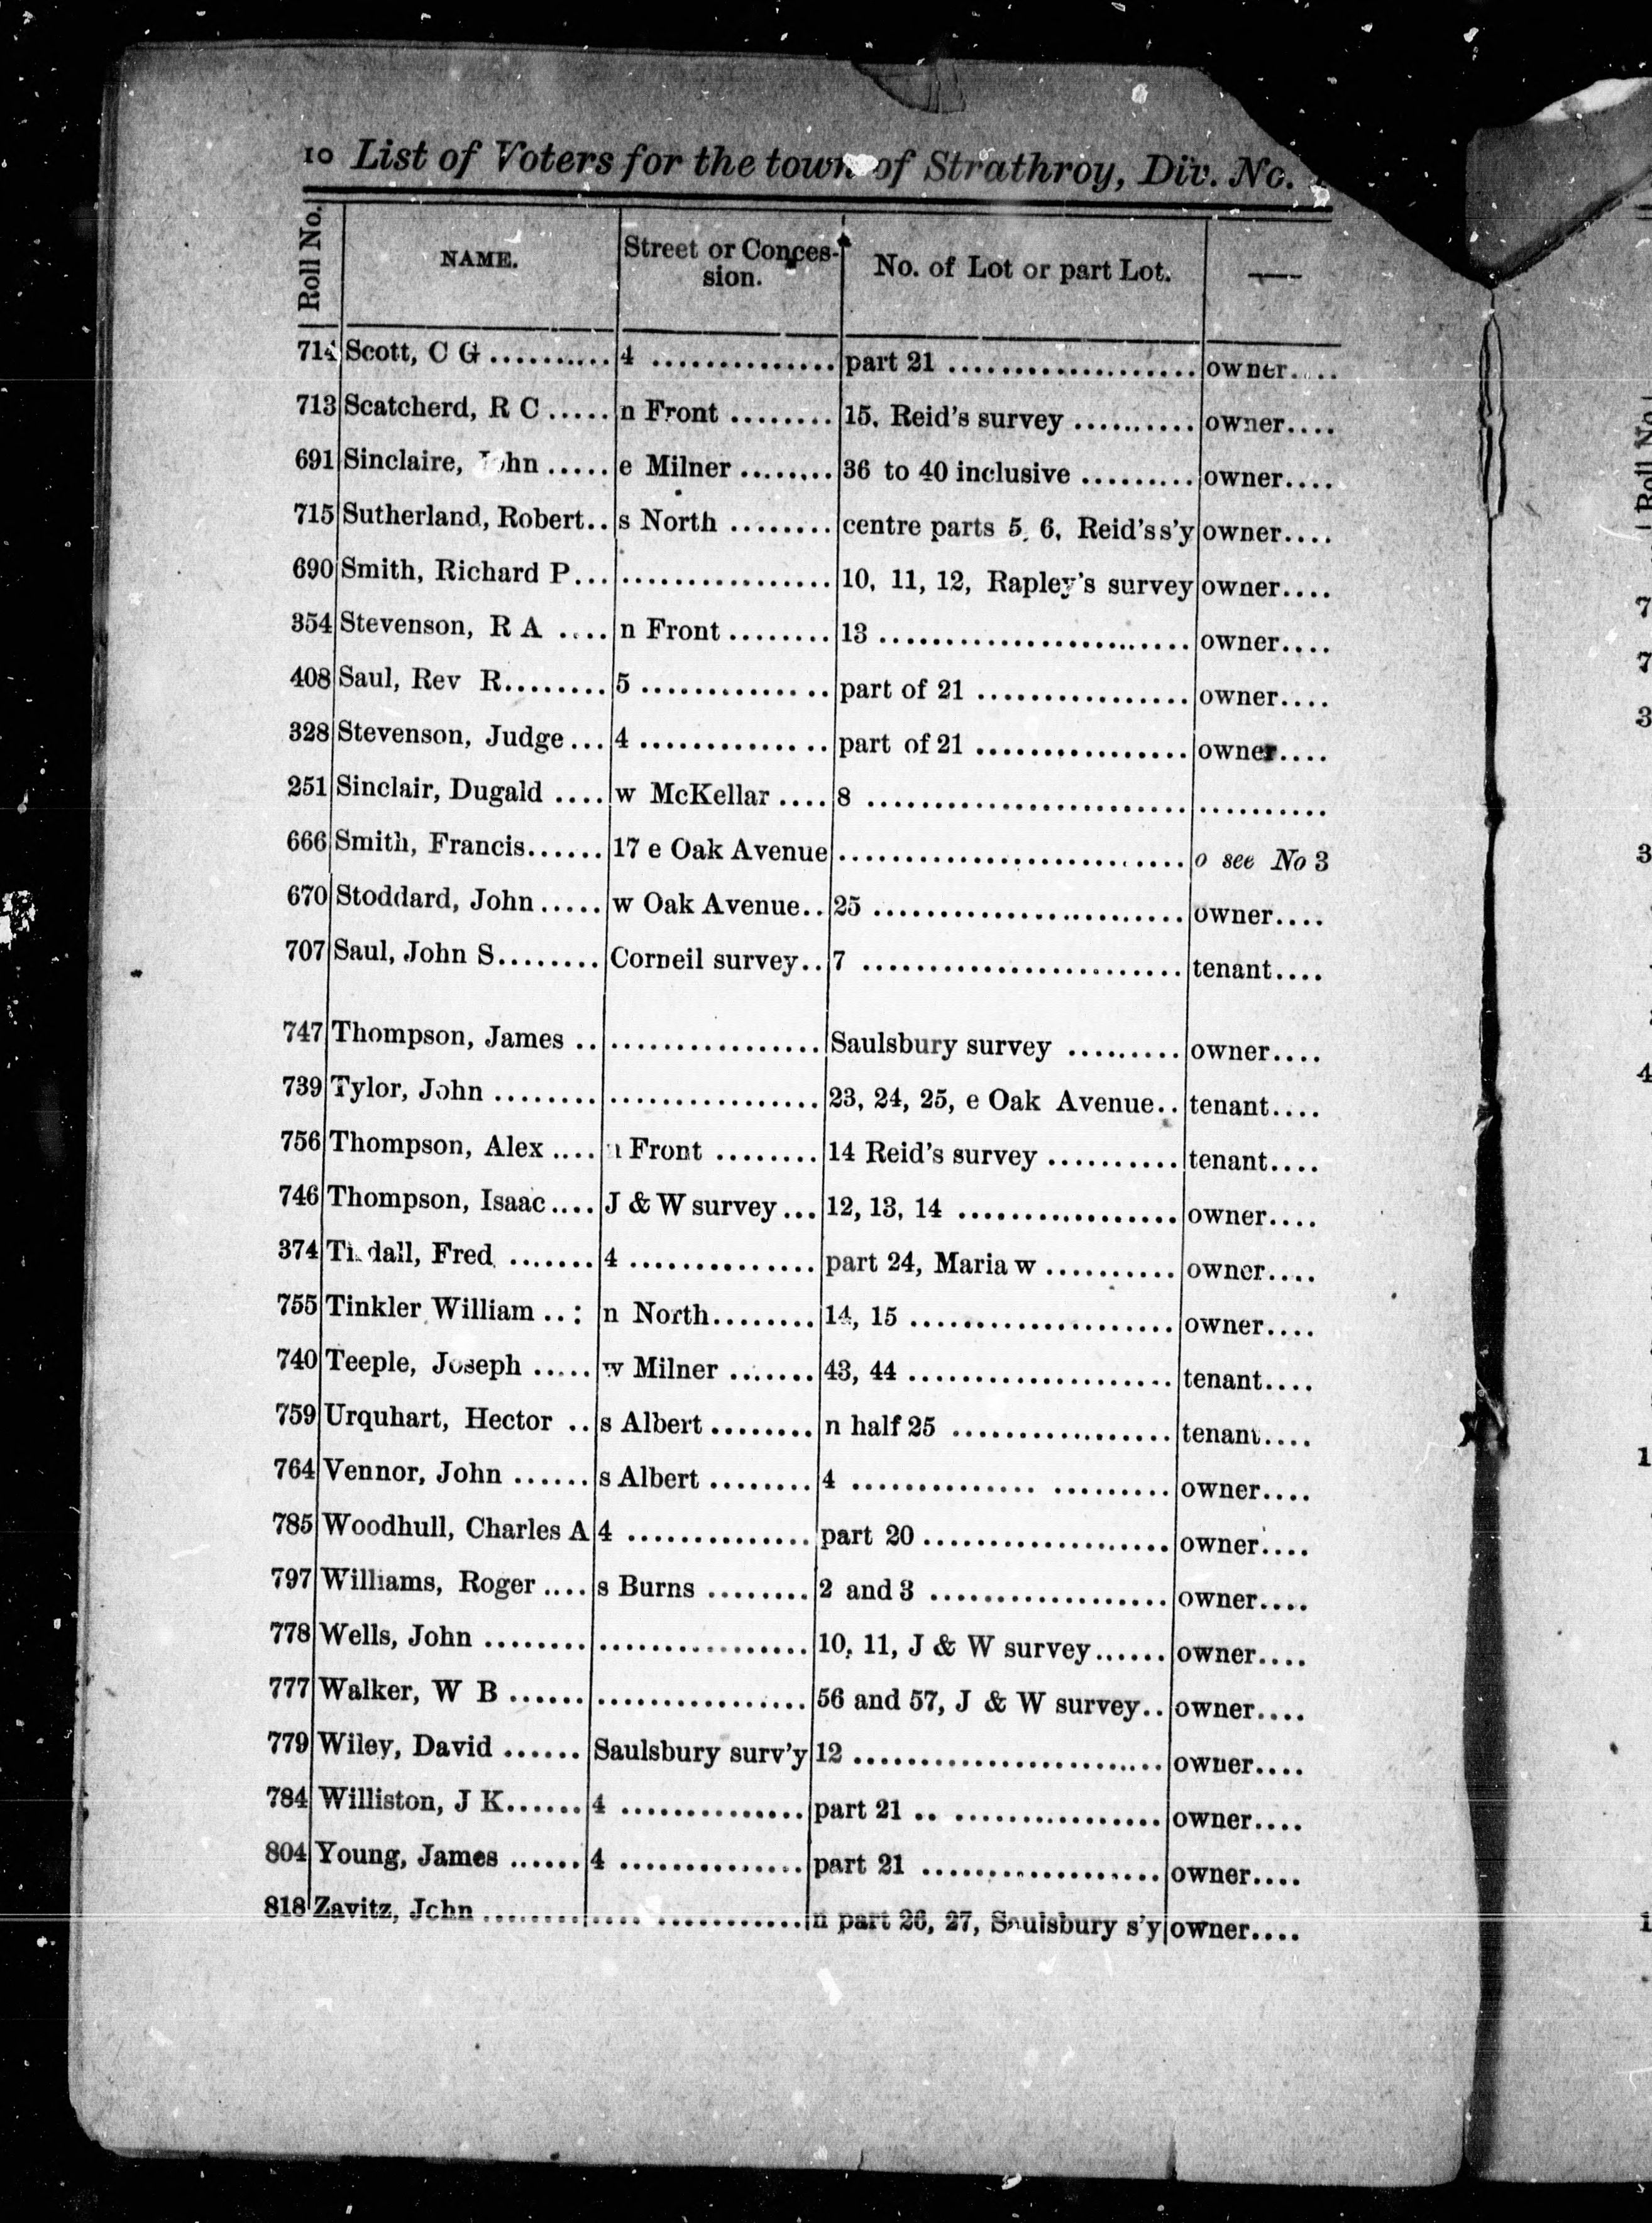 10 List of Voters for the town of Strathroy, Div. No.
Roll No. NAME. Street or Conces-sion. No. of Lot or part Lot. —
714 Scott, C G .......... 4 .............. part 21 ................... owner....
713 Scatcherd, R C ..... n Front ........ 15, Reid's survey .......... owner....
691 Sinclaire, John ..... e Milner ........ 36 to 40 inclusive ......... owner....
715 Sutherland, Robert.. s North ........ centre parts 5, 6, Reid's s'y owner....
690 Smith, Richard P... ................ 10, 11, 12, Rapley's survey owner....
354 Stevenson, R A .... n Front ........ 13 ........................ owner....
408 Saul, Rev R........ 5 .............. part of 21 ................ owner....
328 Stevenson, Judge... 4 .............. part of 21 ................ owner....
251 Sinclair, Dugald .... w McKellar .... 8 ........................ ..........
666 Smith, Francis...... 17 e Oak Avenue .......................... o see No 3
670 Stoddard, John ..... w Oak Avenue.. 25 ........................ owner....
707 Saul, John S........ Corneil survey.. 7 ........................ tenant....
747 Thompson, James .. ................ Saulsbury survey ......... owner....
739 Tylor, John ........ ................ 23, 24, 25, e Oak Avenue.. tenant....
756 Thompson, Alex .... Front ........ 14 Reid's survey .......... tenant....
746 Thompson, Isaac.... J & W survey... 12, 13, 14 ................. owner....
374 Fred ....... 4 .............. part 24, Maria w .......... owner....
755 Tinkler William ..: n North........ 14, 15 .................... owner....
740 Teeple, Joseph ..... w Milner ....... 43, 44 .................... tenant....
759 Urquhart, Hector .. s Albert ........ n half 25 ................. tenant....
764 Vennor, John ...... s Albert ........ 4 .............. ......... owner....
785 Woodhull, Charles A 4 .............. part 20 ................... owner....
797 Williams, Roger .... s Burns ........ 2 and 3 .................. owner....
778 Wells, John ........ ................ 10, 11, J & W survey...... owner....
777 Walker, W B ...... ................ 56 and 57, J & W survey.. owner....
779 Wiley, David ...... Saulsbury surv'y 12 ........................ owner....
784 Williston, J K...... 4 .............. part 21 .. ................ owner....
804 Young, James ...... 4 .............. part 21 .................. owner....
818 Zavitz, John ........ .... ........... n part 26, 27, Saulsbury s'y owner....
Roll No.
7
7
3
3
4
1
1